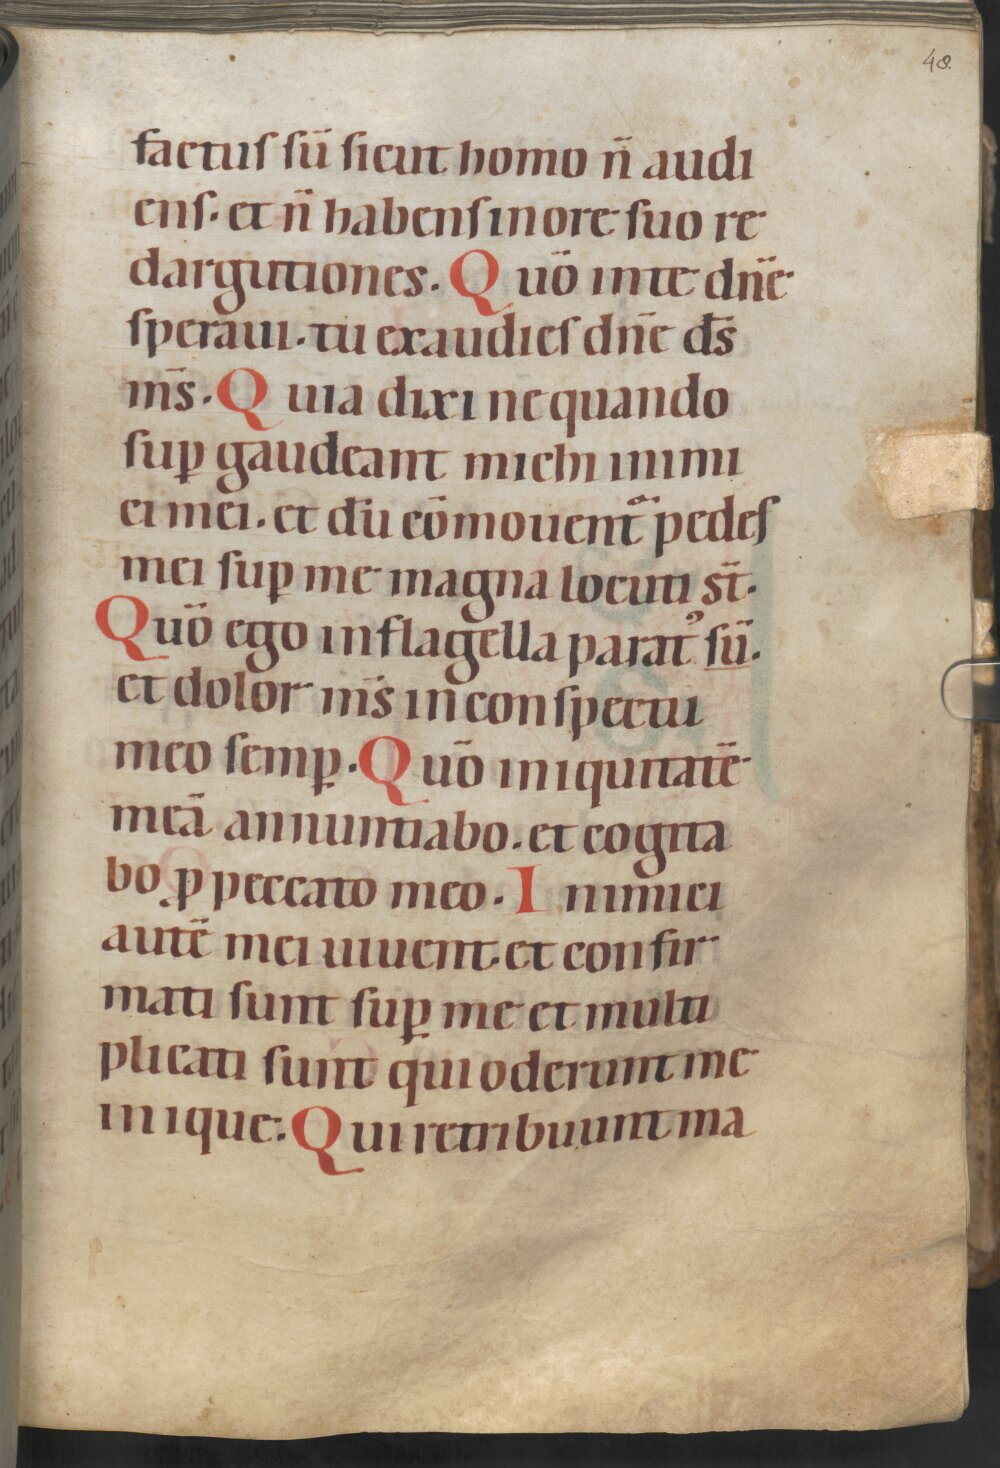 48.
factuſ ſū ſicut homo n̄ audi
enſ. et n̄ habenſ in ore ſuo re
dargutiones. Quō in te dn̄e
ſperaui. tu exaudieſ dn̄e ds̄
ms̄. Quia dixi ne quando
ſuꝑ gaudeant michi inimi
ci mei. et dū cōmouentᷣ pedeſ
mei ſuꝑ me magna locuti st̄.
Quō ego in flagella parat᾽ ſū.
et dolor ms̄ in conſpectu
meo ſemꝑ. Quō iniquitatē
meā annuntiabo. et cogita
bo ꝓ peccato meo. Inimici
autē mei uiuent. et confir
mati ſunt ſuꝑ me et multi
plicati ſunt qui oderunt me
inique. Qui retribuunt ma